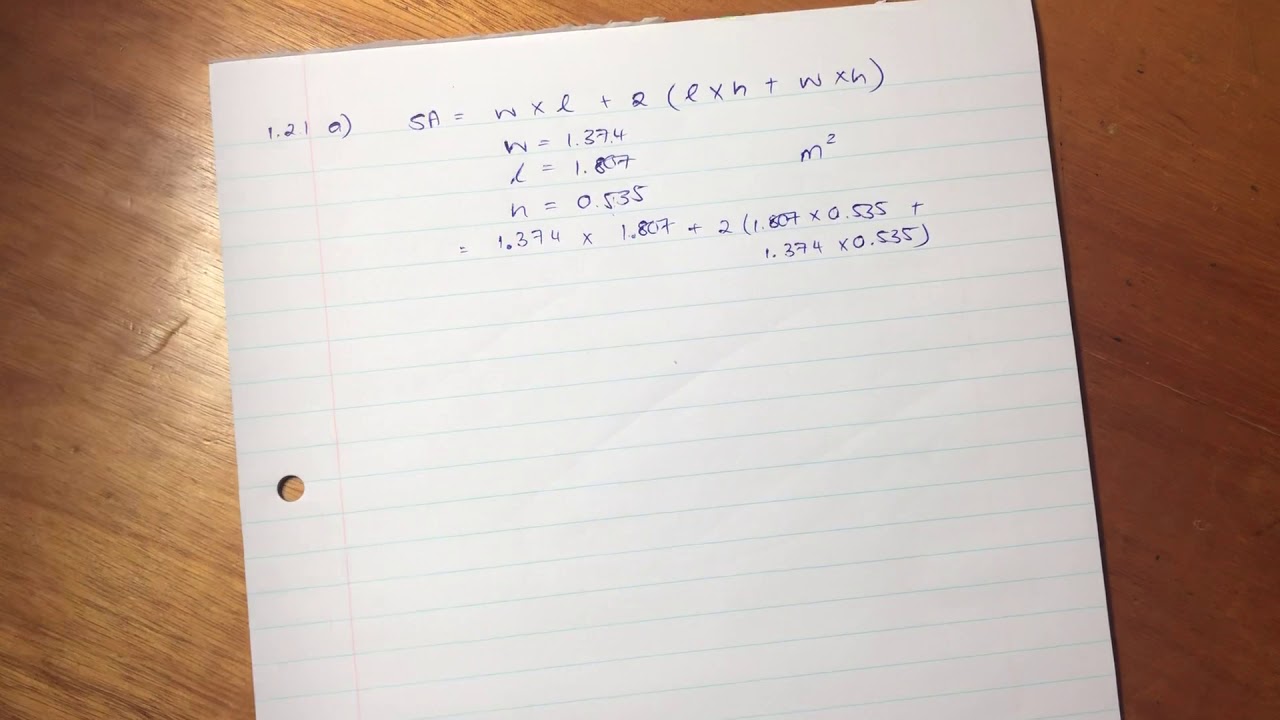 1.21 a) SA = w × l + 2 (l × h + w × h)
w = 1.374
l = 1.807 m²
h = 0.535
= 1.374 × 1.807 + 2 (1.807 × 0.535 +
1.374 × 0.535)